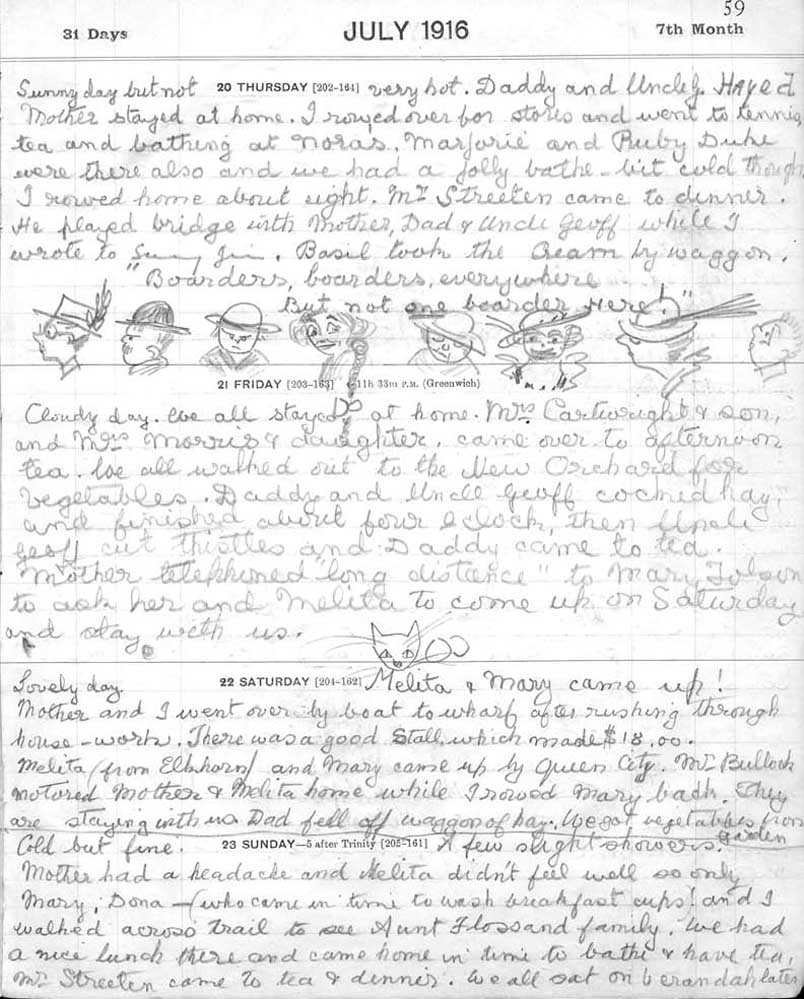 59
31 Days JULY 1916 7th Month
Sunny day but not 20 THURSDAY [202-164] very hot. Daddy and Uncle G. Hayed
Mother stayed at home. I rowed over for stores and went to tennis,
tea and bathing at Noras. Marjorie and Ruby Duke
were there also and we had a jolly bathe - bit cold though
I rowed home about eight. Mr Streeten came to dinner.
He played bridge with Mother, Dad & Uncle Geoff while I
wrote to Sunny Jim. Basil took the Cream by waggon.
"Boarders, boarders, everywhere
But not one boarder Here!"
21 FRIDAY [203-163] 11h 33m P.M. (Greenwich)
Cloudy day. We all stayed at home. Mrs. Cartwright & son,
and Mrs Morris & daughter, came over to afternoon
tea. We all walked out to the New Orchard for
vegetables. Daddy and Uncle Geoff cocked hay,
and finished about four o'clock, then Uncle
Geoff cut thistles and Daddy came to tea.
Mother telephoned "long distance" to Mary
to ask her and Melita to come up on Saturday
and stay with us.
Lovely day. 22 SATURDAY [204-162] Melita & Mary came up!
Mother and I went over by boat to wharf after rushing through
house-work. There was a good Stall, which made $18.00.
Melita (from Elkhorn) and Mary came up by Queen City. Mr Bullock
motored Mother & Melita home while I rowed Mary back. They
are staying with us. Dad fell off waggon of hay. We got vegetables from
garden
Cold but fine. 23 SUNDAY—5 after Trinity [205-161] A few slight showers.
Mother had a headache and Melita didn't feel well so only
Mary, Dona - (who came in time to wash breakfast cups! and I
walked across trail to see Aunt Floss and family. We had
a nice lunch there and came home in time to bathe & have tea,
Mr Streeten came to tea & dinner. We all sat on verandah later